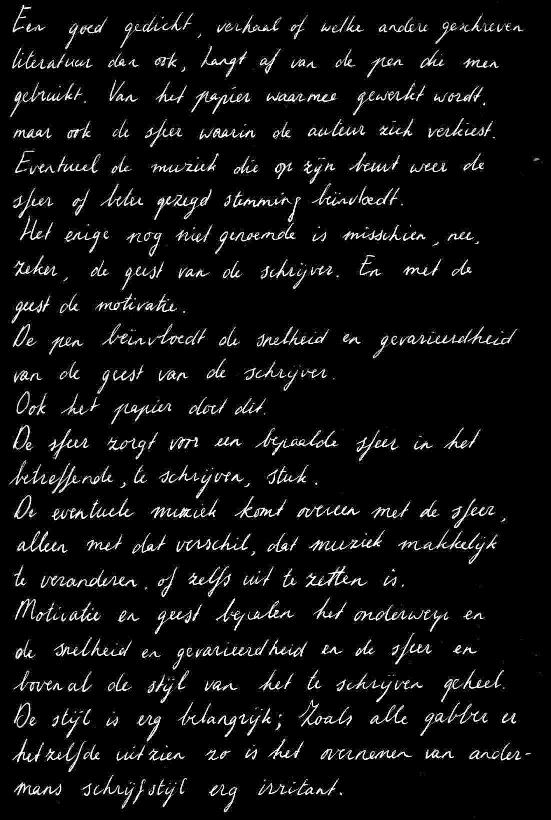 Een goed gedicht, verhaal of welke andere geschreven
literatuur dan ook, hangt af van de pen die men
gebruikt. Van het papier waarmee gewerkt wordt,
maar ook de sfeer waarin de auteur zich verkiest.
Eventueel de muziek die op zijn beurt weer de
sfeer of beter gezegd stemming beïnvloedt.
Het enige nog niet genoemde is misschien, nee,
zeker, de geest van de schrijver. En met de
geest de motivatie.
De pen beïnvloedt de snelheid en gevarieerdheid
van de geest van de schrijver.
Ook het papier doet dit.
De sfeer zorgt voor een bepaalde sfeer in het
betreffende, te schrijven, stuk.
De eventuele muziek komt overeen met de sfeer,
alleen met dat verschil, dat muziek makkelijk
te veranderen, of zelfs uit te zetten is.
Motivatie en geest bepalen het onderwerp en
de snelheid en gevarieerdheid en de sfeer en
bovenal de stijl van het te schrijven geheel.
De stijl is erg belangrijk; Zoals alle gabber er
hetzelfde uitzien zo is het overnemen van ander-
mans schrijfstijl erg irritant.